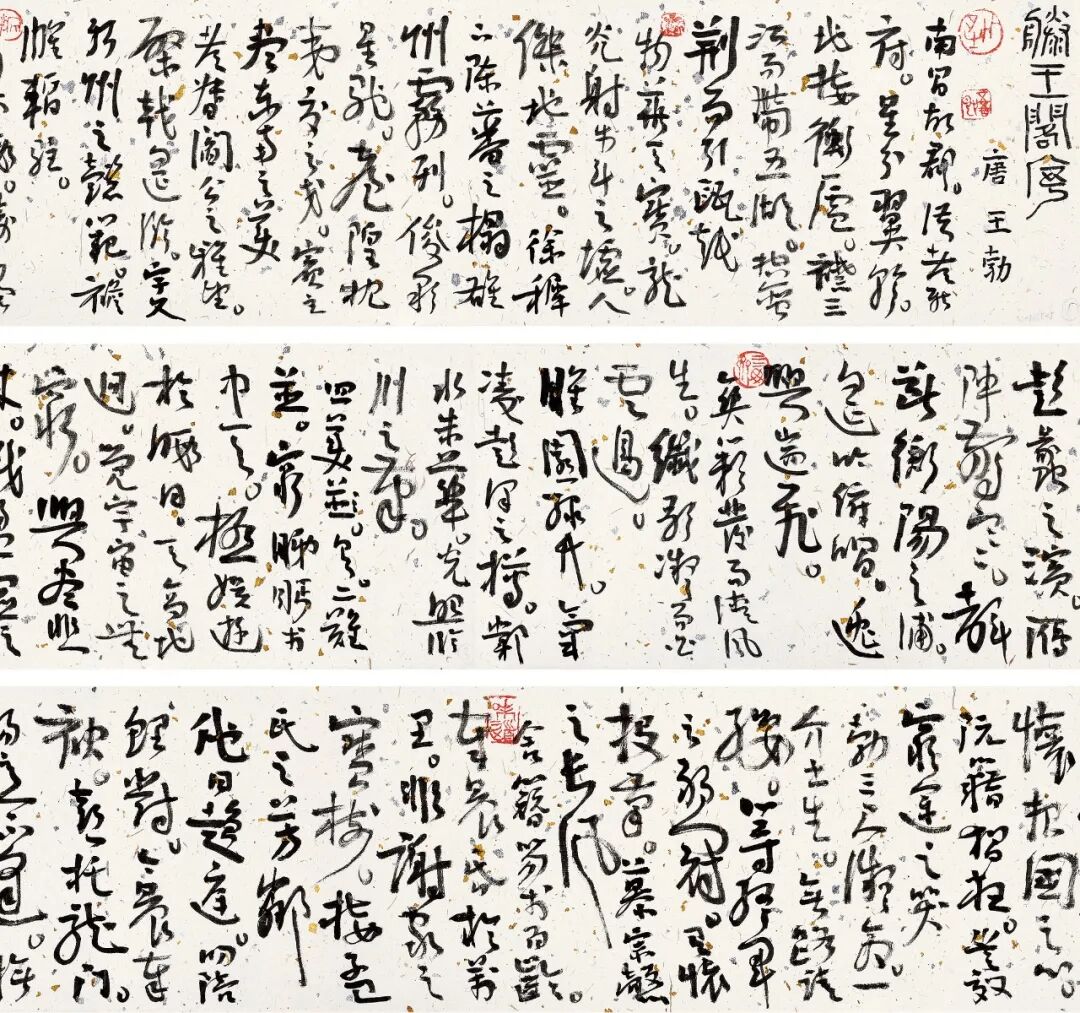 滕王閣序
唐 王勃
南昌故郡。洪都新
府。星分翼軫。
地接衡廬。襟三
江而帶五湖。控蠻
荊而引甌越
物華天寶。龍
光射牛斗之墟。人
傑地靈。徐穉
下陳蕃之榻。雄
州霧列。俊彩
星馳。臺隍枕
夷夏之交。賓主
盡東南之美
都督閻公之雅望。
棨戟遙臨。宇文
新州之懿範。襜
帷暫駐。
彭蠡之濱。雁
陣驚寒。聲
斷衡陽之浦。
遙吟俯暢。逸
興遄飛。
爽籟發而清風
生。纖歌凝而白
雲遏。
睢園綠竹。氣
凌彭澤之樽。鄴
水朱華。光照臨
川之筆。
四美並。具。二難
並。窮睇眄於
中天。極娛遊
於暇日。天高地
迥。覺宇宙之無
窮。興盡悲
來。識盈虛
懷報國之心
阮籍猖狂。豈效
窮途之哭
勃三尺微命。一
介書生。無路請
纓。等終軍
之弱冠。有懷
投筆。慕宗愨
之長風
舍簪笏於百齡。
奉晨昏於萬
里。非謝家之
寶樹。接孟
氏之芳鄰
他日趨庭。叨陪
鯉對。今晨奉
袂。喜托龍門。
楊意不逢。撫